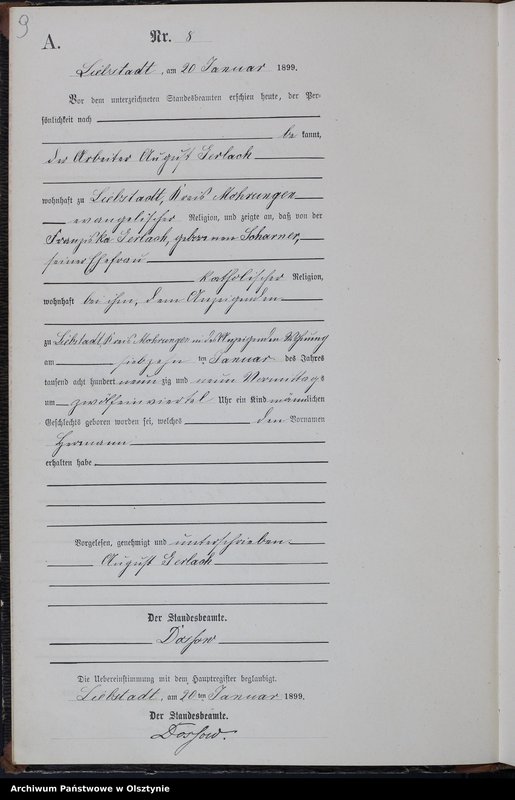 9
A.
Nr. 8
Liebstadt, am 20 Januar 1899.
Vor dem unterzeichneten Standesbeamten erschien heute, der Per-
sönlichkeit nach
be kannt,
der Arbeiter August Gerlach
wohnhaft zu Liebstadt, Kreis Mohrungen
evangelischer Religion, und zeigte an, daß von der
Franziska Gerlach, geborenen Scharner,
seiner Ehefrau
katholischer Religion,
wohnhaft bei ihm, dem Anzeigenden
zu Liebstadt, Kreis Mohrungen in des Anzeigenden Wohnung
am siebzehn ten Januar des Jahres
tausend acht hundert neun zig und neun Vormittags
um zwölf ein viertel Uhr ein Kind männlichen
Geschlechts geboren worden sei, welches den Vornamen
Hermann
erhalten habe
Vorgelesen, genehmigt und unterschrieben
August Gerlach
Der Standesbeamte.
Dossow
Die Uebereinstimmung mit dem Hauptregister beglaubigt.
Liebstadt, am 20 ten Januar 1899.
Der Standesbeamte.
Dossow.
Archiwum Państwowe w Olsztynie